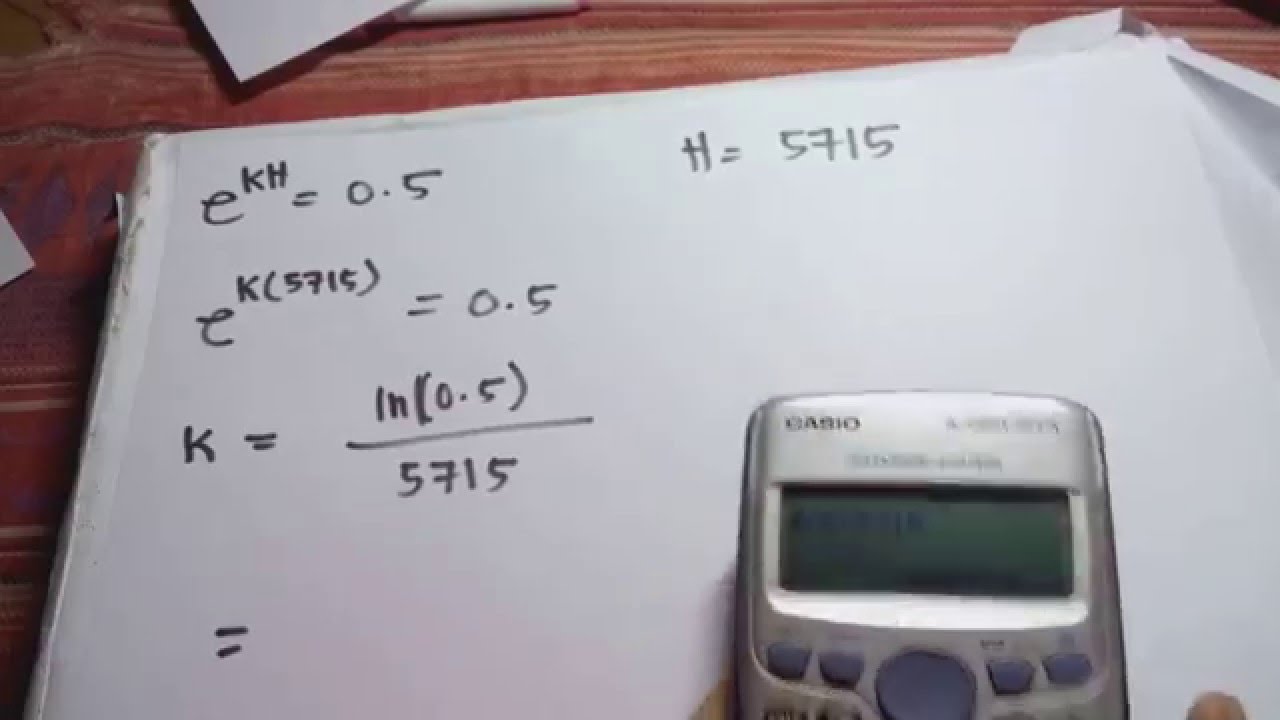 e^KH = 0.5
H = 5715
e^K(5715) = 0.5
K = ln(0.5)
5715
=
CASIO